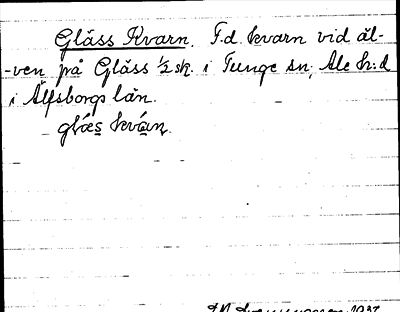 Gläss Kvarn. F.d. kvarn vid äl-
-ven på Gläss ½ sk. i Tunge sn, Ale h:d
i Älfsborgs län.
gläs kván.
1937